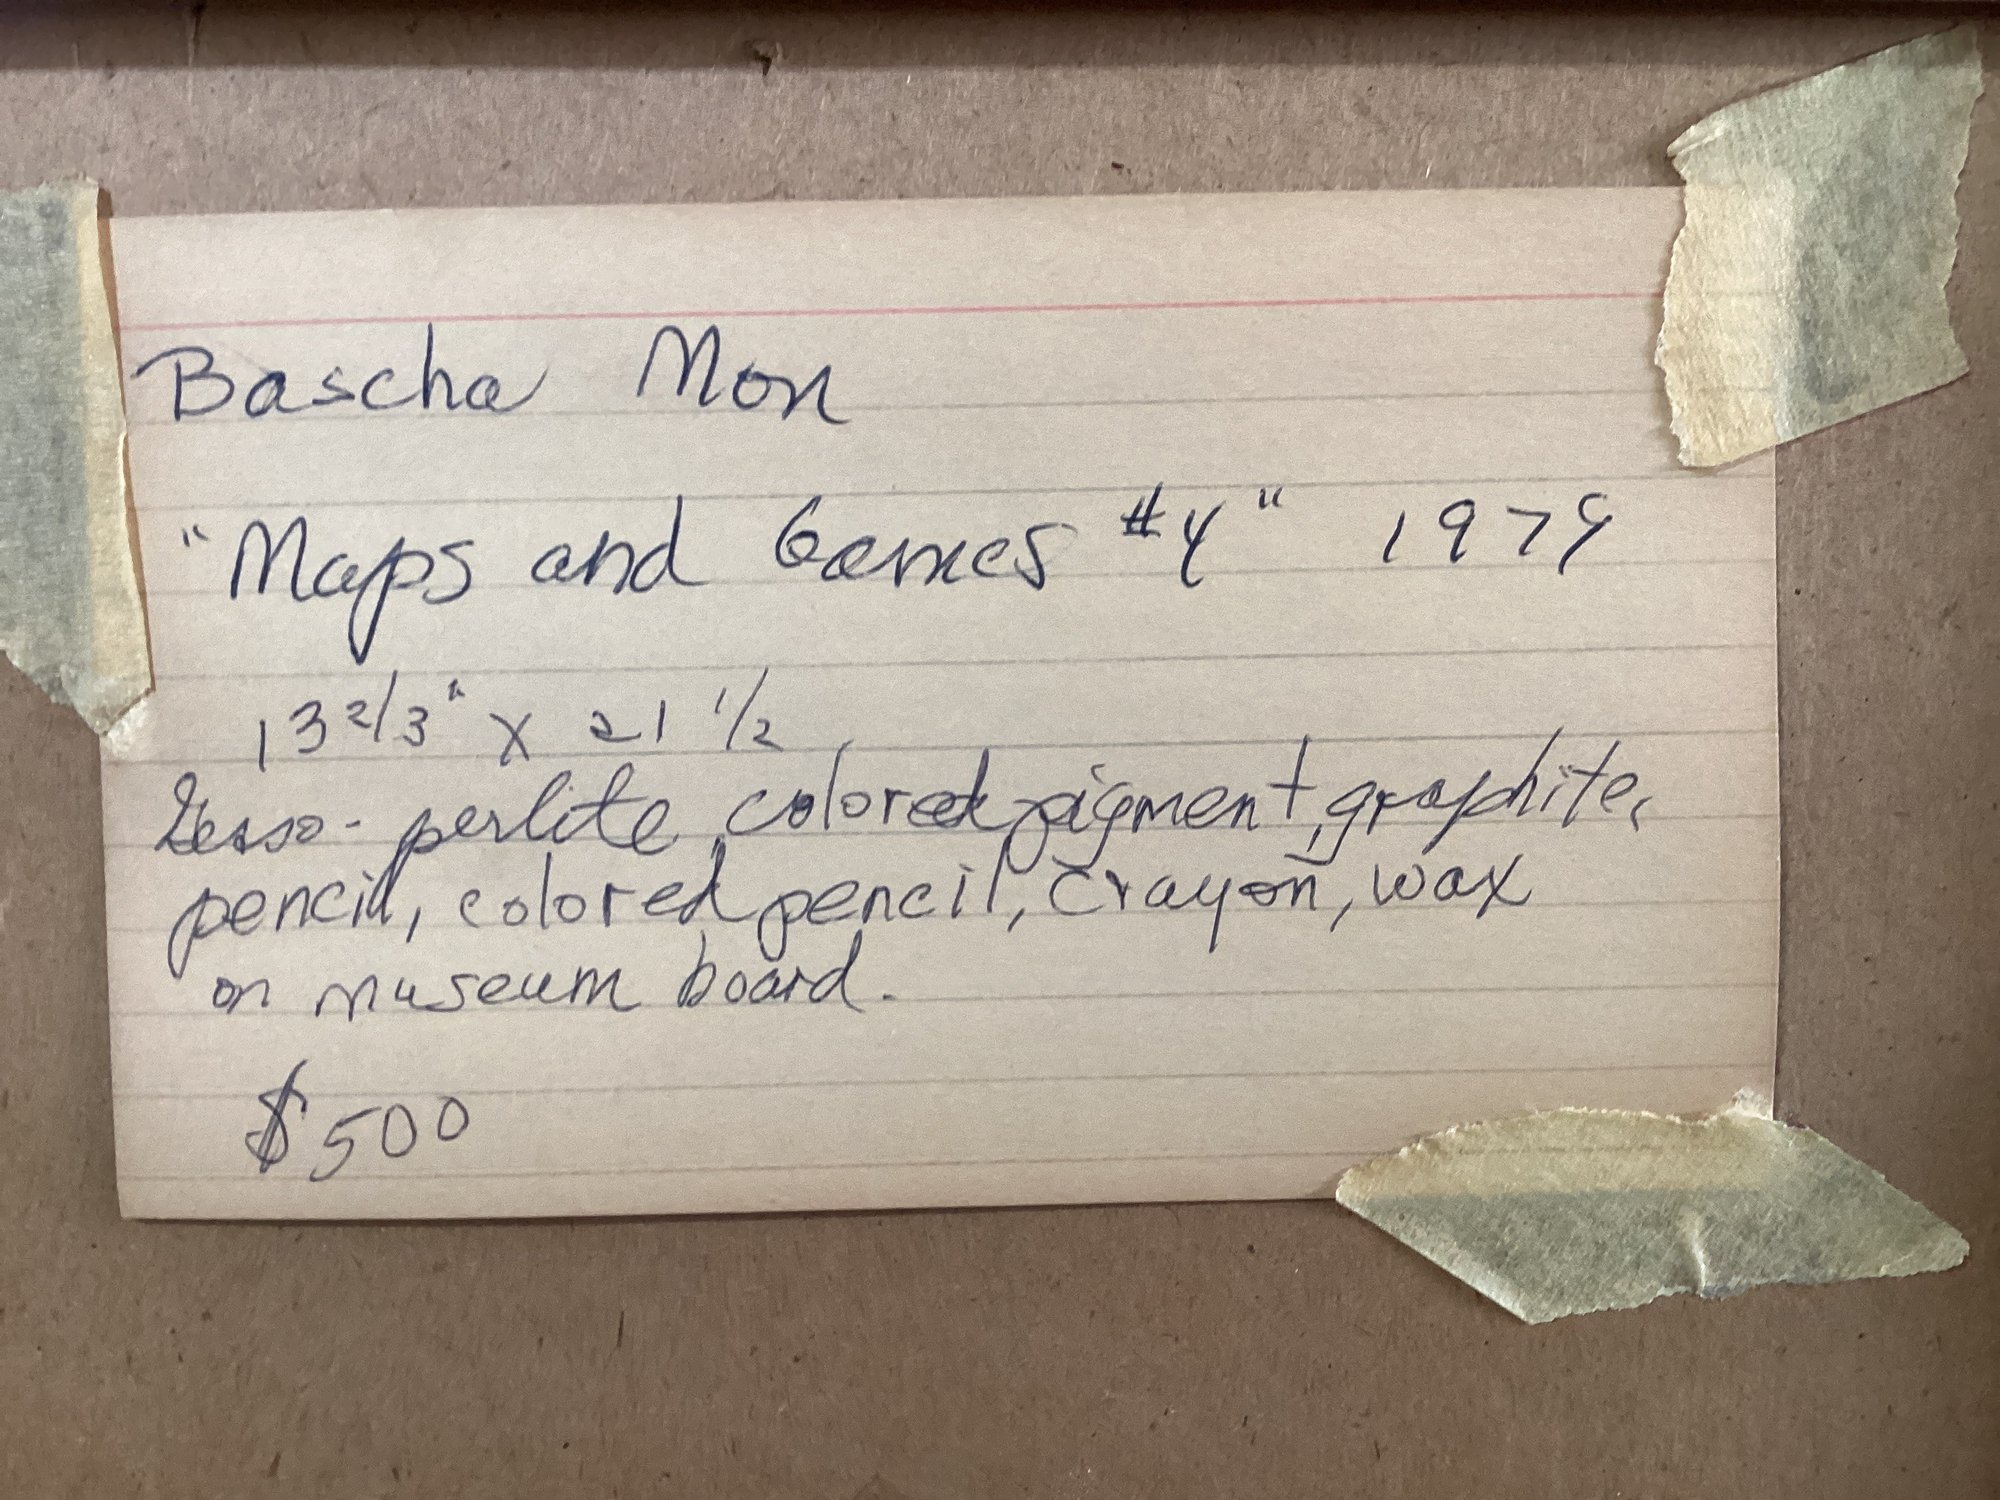 Bascha Mon
"Maps and Games #4" 1979
13 2/3" x 21 1/2
Gesso-perlite, colored pigment, graphite,
pencil, colored pencil, crayon, wax
on museum board.
$500